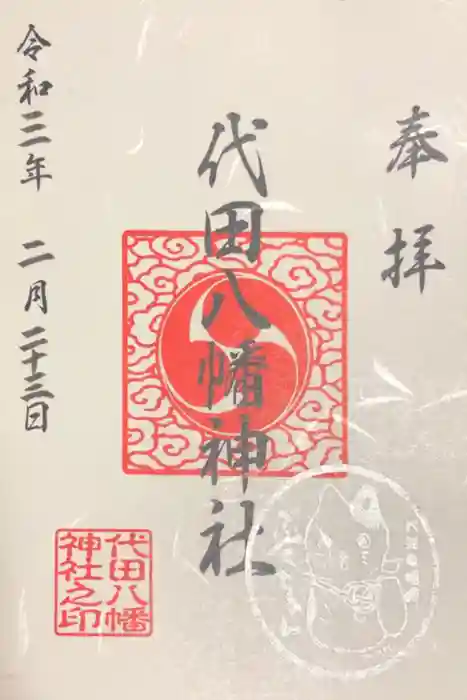 奉拝
代田八幡神社
令和三年 二月二十三日
代田八幡
神社之印